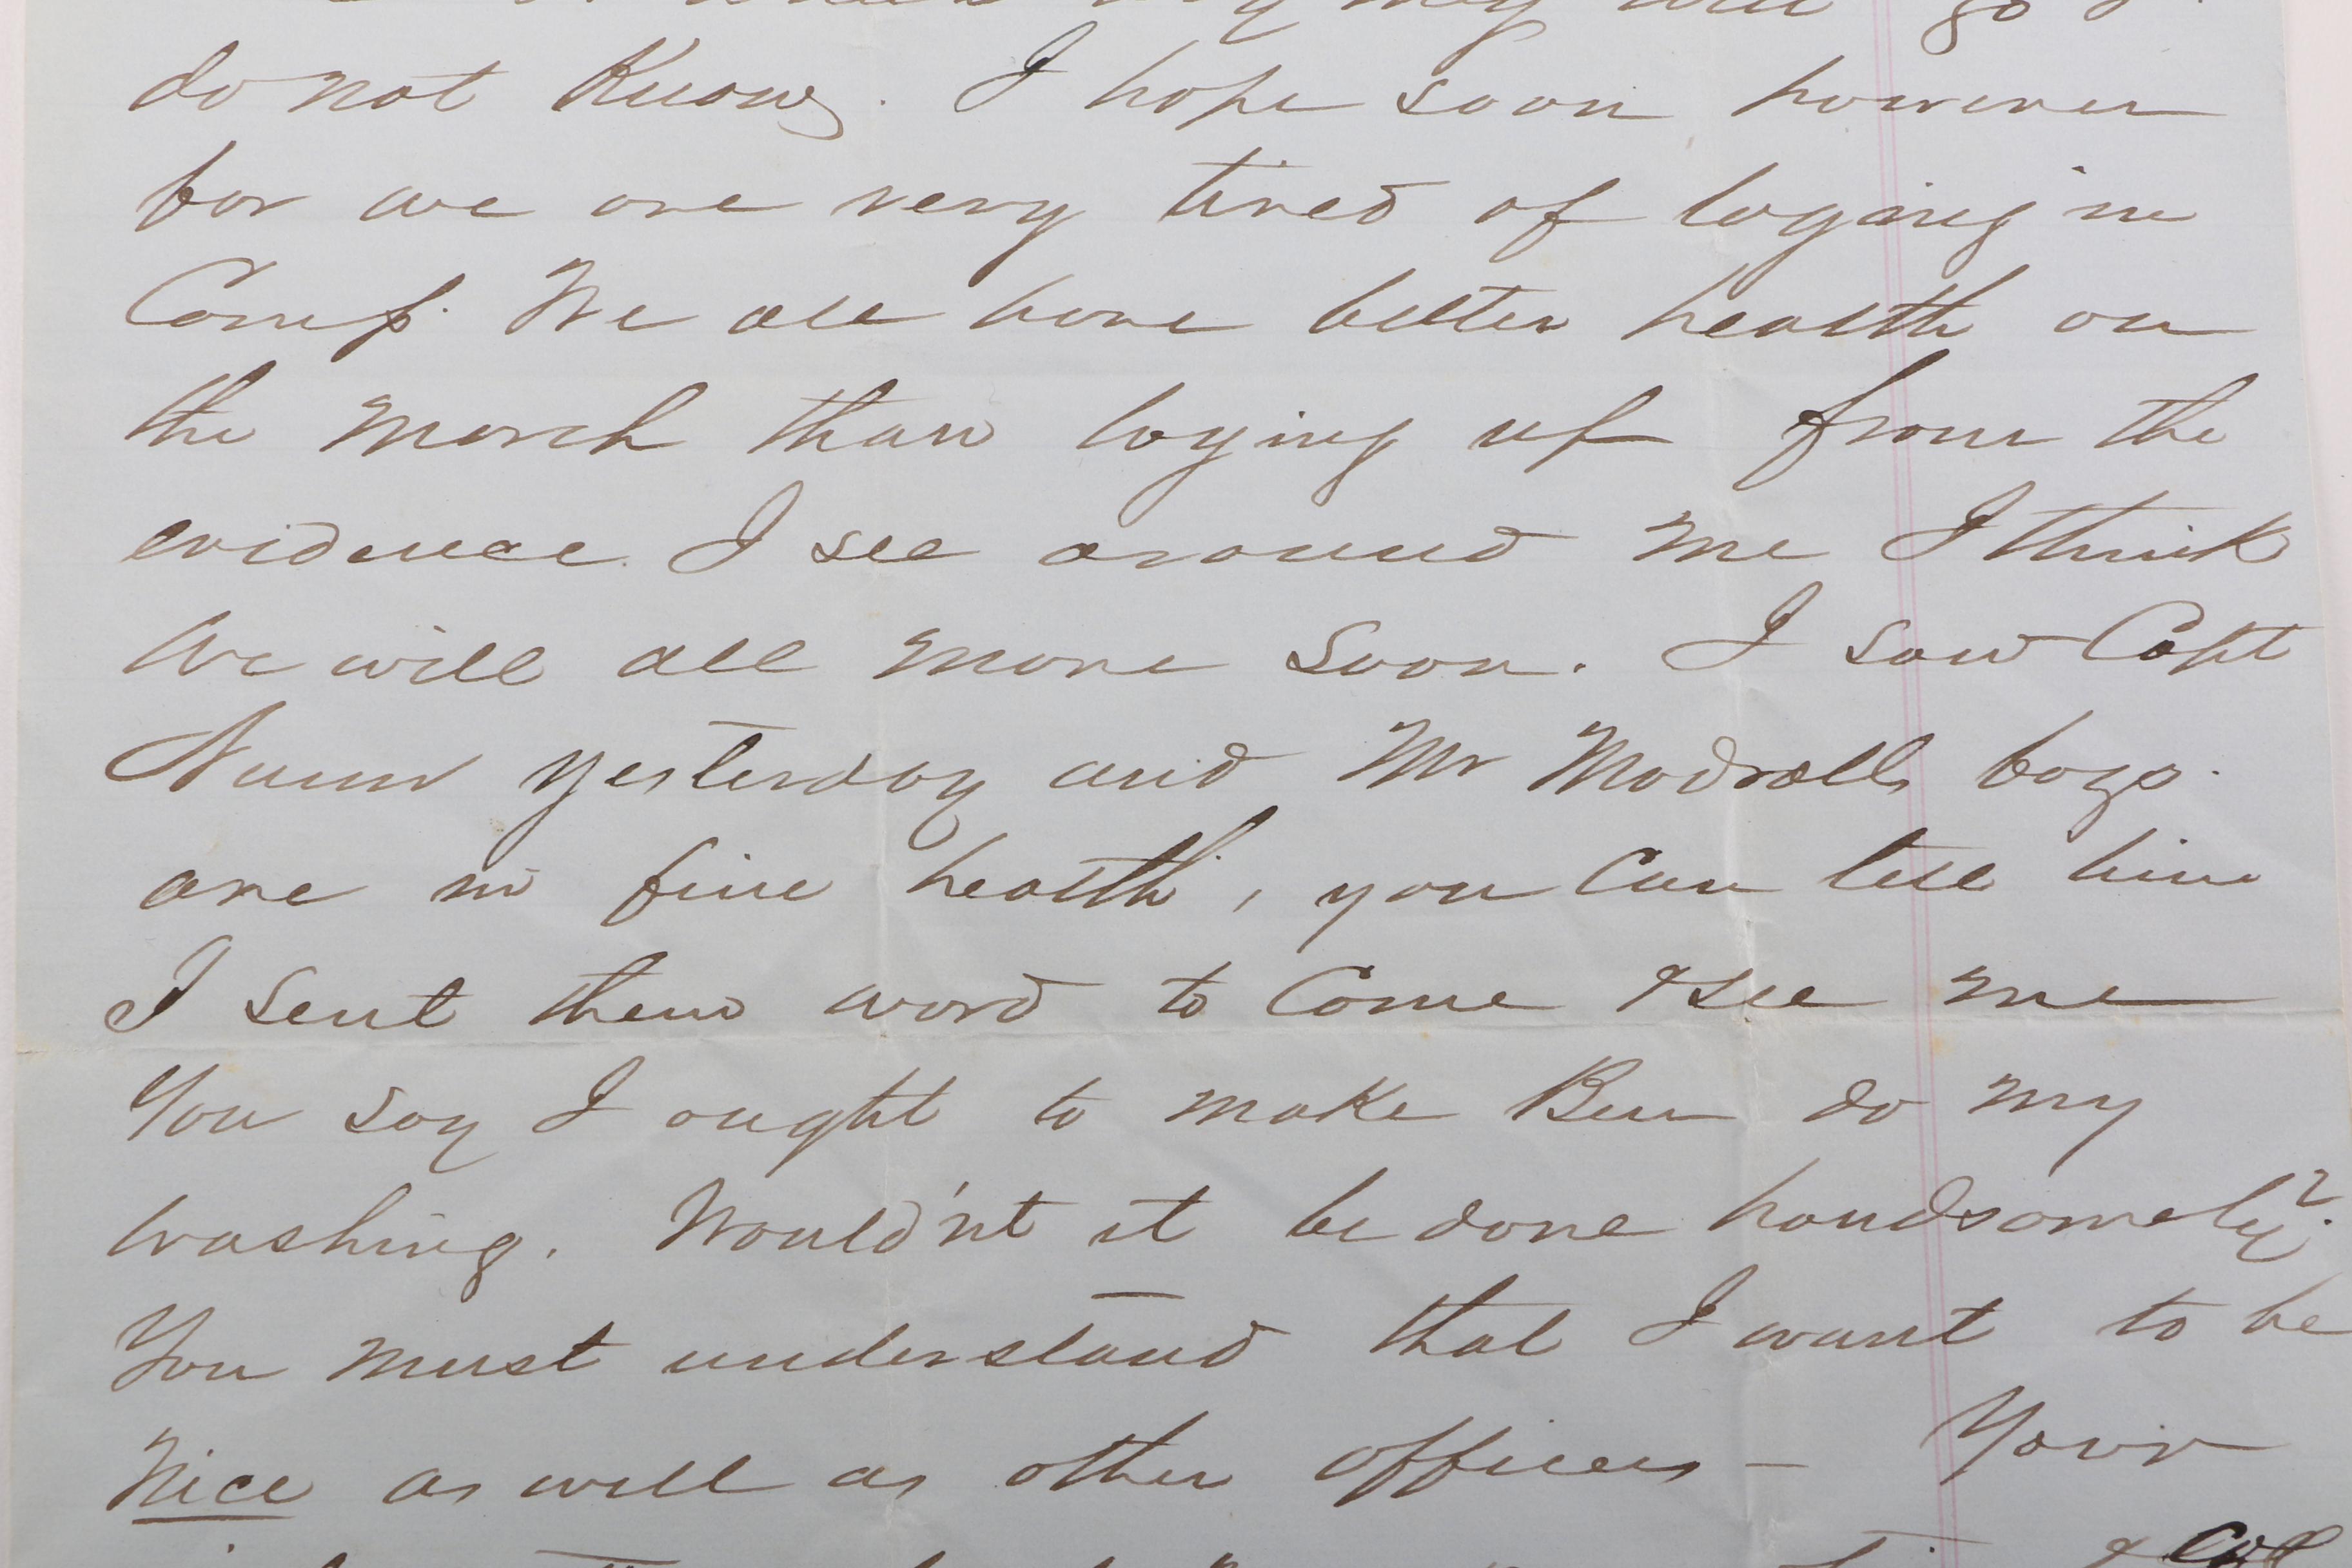 may will go I
do not Know. I hope soon however
for we are very tired of laying in
Camp. We all have better health on
the march than laying up from the
evidence I see around me I think
We will all move soon. I saw Capt
Nunn yesterday and Mr Modralls boys
are in fine health, you Can tell him
I sent them word to Come & see me
You say I ought to make Ben do my
washing. Would'nt it be done handsomely?
You must understand that I want to be
Nice as well as other officers — Your